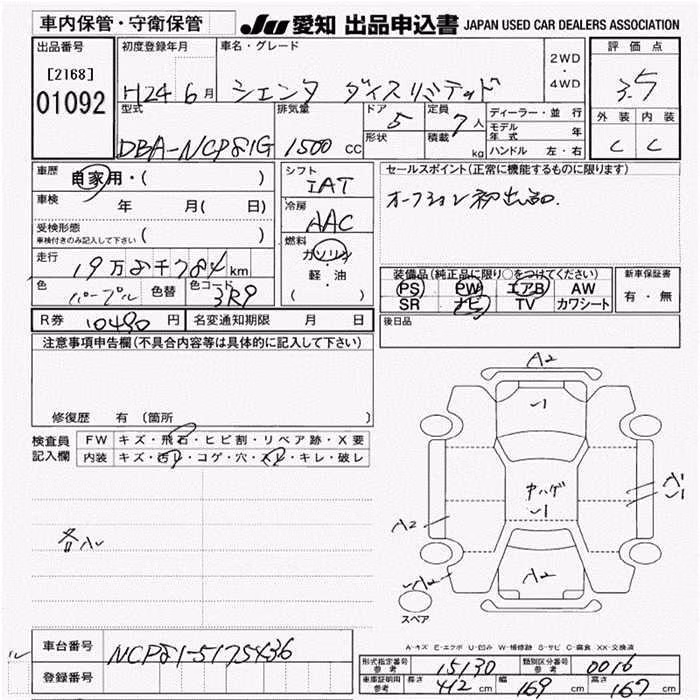 車内保管・守衛保管 JU 愛知 出品申込書 JAPAN USED CAR DEALERS ASSOCIATION
出品番号 初度登録年月 車名・グレード 2WD ・ 4WD 評価点
[2168] 01092 H24年6月 シエンタ ダイスリミテッド 3.5
型式 排気量 ドア 5 定員 7人 ディーラー・並行 外装 内装
DBA-NCP81G 1500 CC 形状 積載 kg モデル年式 年 C C
ハンドル 左・右
車歴 自家用・( ) シフト IAT セールスポイント(正常に機能するものに限ります)
車検 年 月( 日) 冷房 AAC オークション初出品.
受検形態 ( )
車検付きのみ記入して下さい
走行 19万8千784km 燃料 ガソリン 軽・油 ( )
装備品(純正品に限り○をつけてください) 新車保証書
色 パープル 色替 色コード 3R9 PS PW エアB AW 有・無
SR ナビ TV カワシート
R券 10490円 名変通知期限 月 日 後日品
注意事項申告欄(不具合内容等は具体的に記入して下さい)
修復歴 有 (箇所
検査員記入欄 FW キズ・飛石・ヒビ割・リペア跡・X要
内装 キズ・汚レ・コゲ・穴・スレ・キレ・破レ
A2
A2
A2
A2
A1
スペア
A-キズ E-エクボ U-凹み W-補修跡 S-サビ C-腐食 XX-交換済
車台番号 NCP81-5175436
登録番号
形式指定番号 参考 15130 類別区分番号 参考 0016
車庫証明用 参考 長さ 412 cm 幅 169 cm 高さ 167 cm